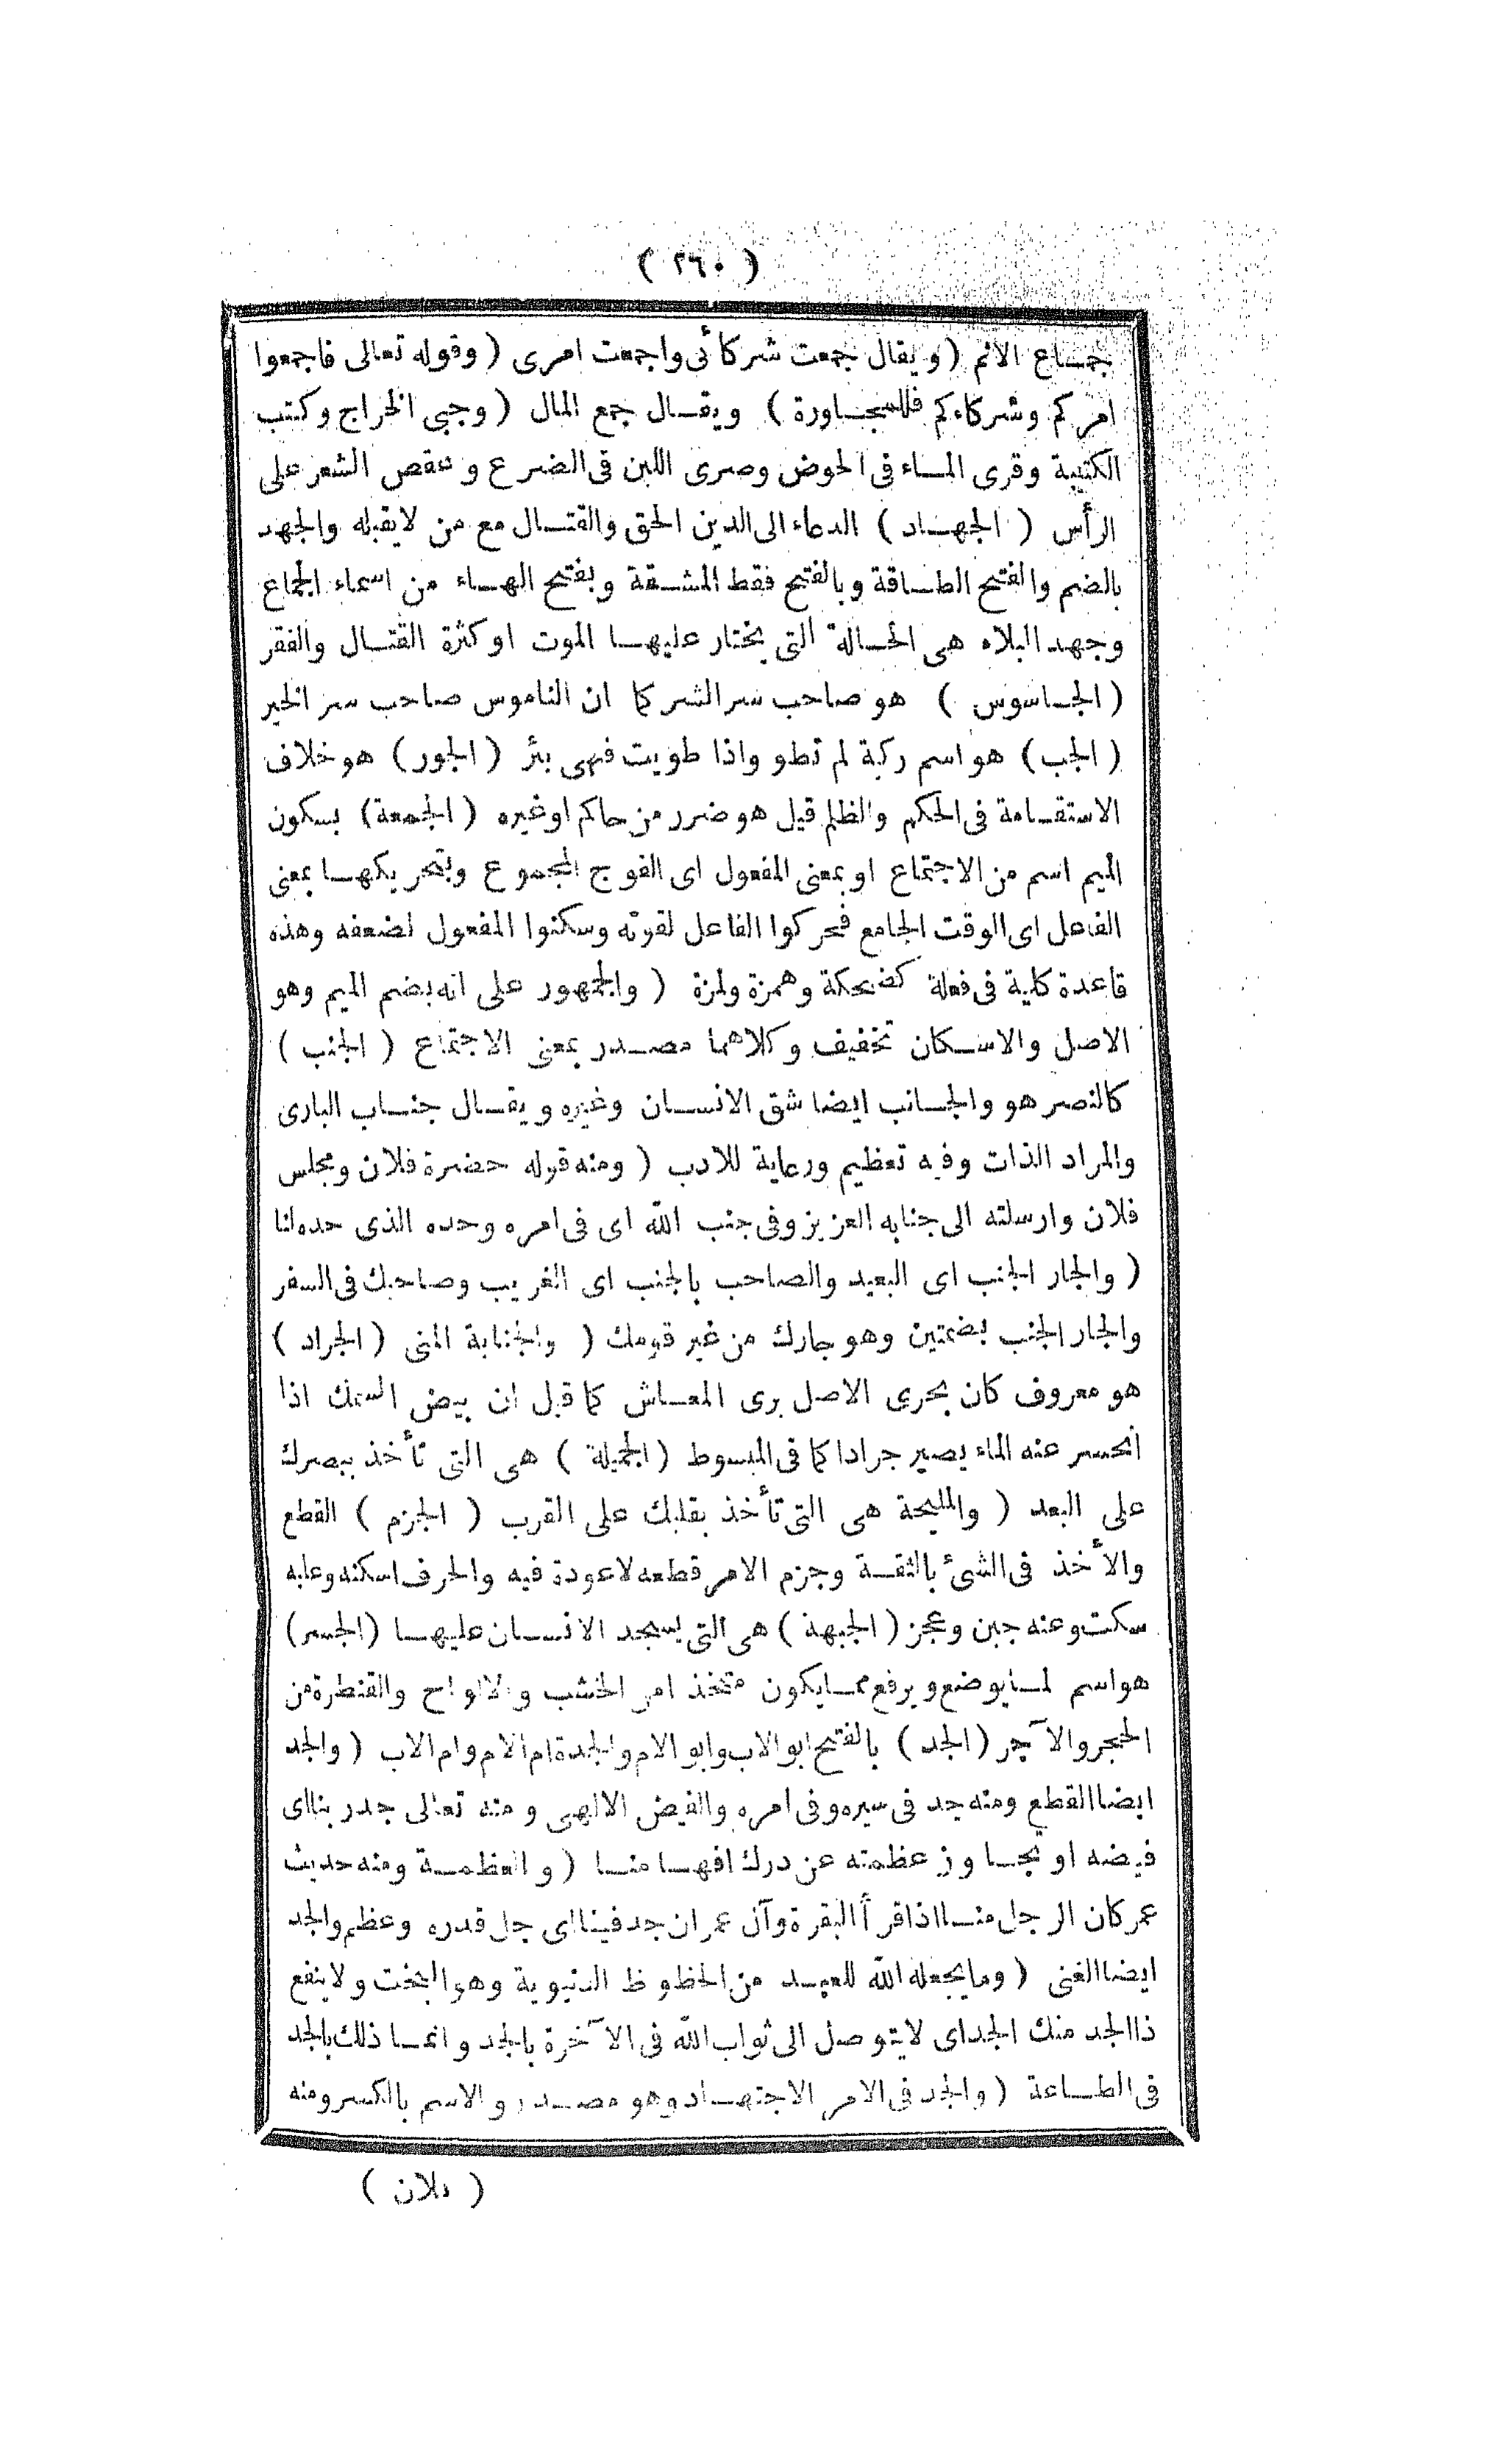 ( ٢٦٠ )
جمـاع الاثم ( ويقال جمعت شركائى واجمعت امرى ( وقوله تعالى فاجمعوا
امركم وشركاءكم فللمجـاورة ) ويقـال جمع المال ( وجبى الخراج وكتب
الكتيبة وقرى المـاء فى الحوض وصرى اللبن فى الضرع وعقص الشعر على
الرأس ( الجهـاد ) الدعاء الى الدين الحق والقتـال مع من لايقبله والجهد
بالضم والفتح الطـاقة وبالفتح فقط المشـقة وبفتح الهـاء من اسماء الجماع
وجهد البلاء هى الحـالة التى يختار عليهـا الموت او كثرة القتـال والفقر
( الجـاسوس ) هو صاحب سر الشر كما ان الناموس صاحب سر الخير
( الجب ) هو اسم ركية لم تطو واذا طويت فهى بئر ( الجور ) هو خلاف
الاستقـامة فى الحكم والظلم قيل هو ضرر من حاكم او غيره ( الجمعة ) بسكون
الميم اسم من الاجتماع او بمعنى المفعول اى الفوج المجموع وبتحريكهـا بمعنى
الفاعل اى الوقت الجامع فحركوا الفاعل لقوته وسكنوا المفعول لضعفه وهذه
قاعدة كلية فى فعلة كضحكة وهمزة ولمزة ( والجمهور على انه بضم الميم وهو
الاصل والاسـكان تخفيف وكلاهما مصـدر بمعنى الاجتماع ( الجنب )
كالنصر هو والجـانب ايضا شق الانسـان وغيره ويقـال جنـاب البارى
والمراد الذات وفيه تعظيم ورعاية للادب ( ومنه قوله حضرة فلان ومجلس
فلان وارسلته الى جنابه العزيز وفى جنب الله اى فى امره وحده الذى حده لنا
( والجار الجنب اى البعيد والصاحب بالجنب اى الغريب وصاحبك فى السفر
والجار الجنب بضمتين وهو جارك من غير قومك ( والجنابة المنى ( الجراد )
هو معروف كان بحرى الاصل برى المعـاش كما قيل ان بيض السمك اذا
انحسر عنه الماء يصير جرادا كما فى المبسوط ( الجميلة ) هى التى تأخذ ببصرك
على البعد ( والمليحة هى التى تأخذ بقلبك على القرب ( الجزم ) القطع
والأخذ فى الشئ بالثقـة وجزم الامر قطعه لاعودة فيه والحرف اسكنه وعليه
سكت وعنه جبن وعجز ( الجبهة ) هى التى يسجد الانسـان عليهـا ( الجسر )
هو اسم لمـا يوضع ويرفع ممـا يكون متخذا من الخشب والالواح والقنطرة من
الحجر والآجر ( الجد ) بالفتح ابو الاب وابو الام والجدة ام الام وام الاب ( والجد
ايضا القطع ومنه جد فى سيره وفى امره والفيض الالهى ومنه تعالى جد ربنا اى
فيضه او تجـاوز عظمته عن درك افهـامنـا ( والعظمـة ومنه حديث
عمر كان الرجل منـا اذا قرأ البقرة وآل عمران جد فينا اى جل قدره وعظم والجد
ايضا الغنى ( وما يجعله الله للعبـد من الحظوظ الدنيوية وهو البخت ولا ينفع
ذا الجد منك الجد اى لايتوصل الى ثواب الله فى الآخرة بالجد وانمـا ذلك بالجد
فى الطـاعة ( والجد فى الامر الاجتهـاد وهو مصـدر والاسم بالكسر ومنه
( فلان )